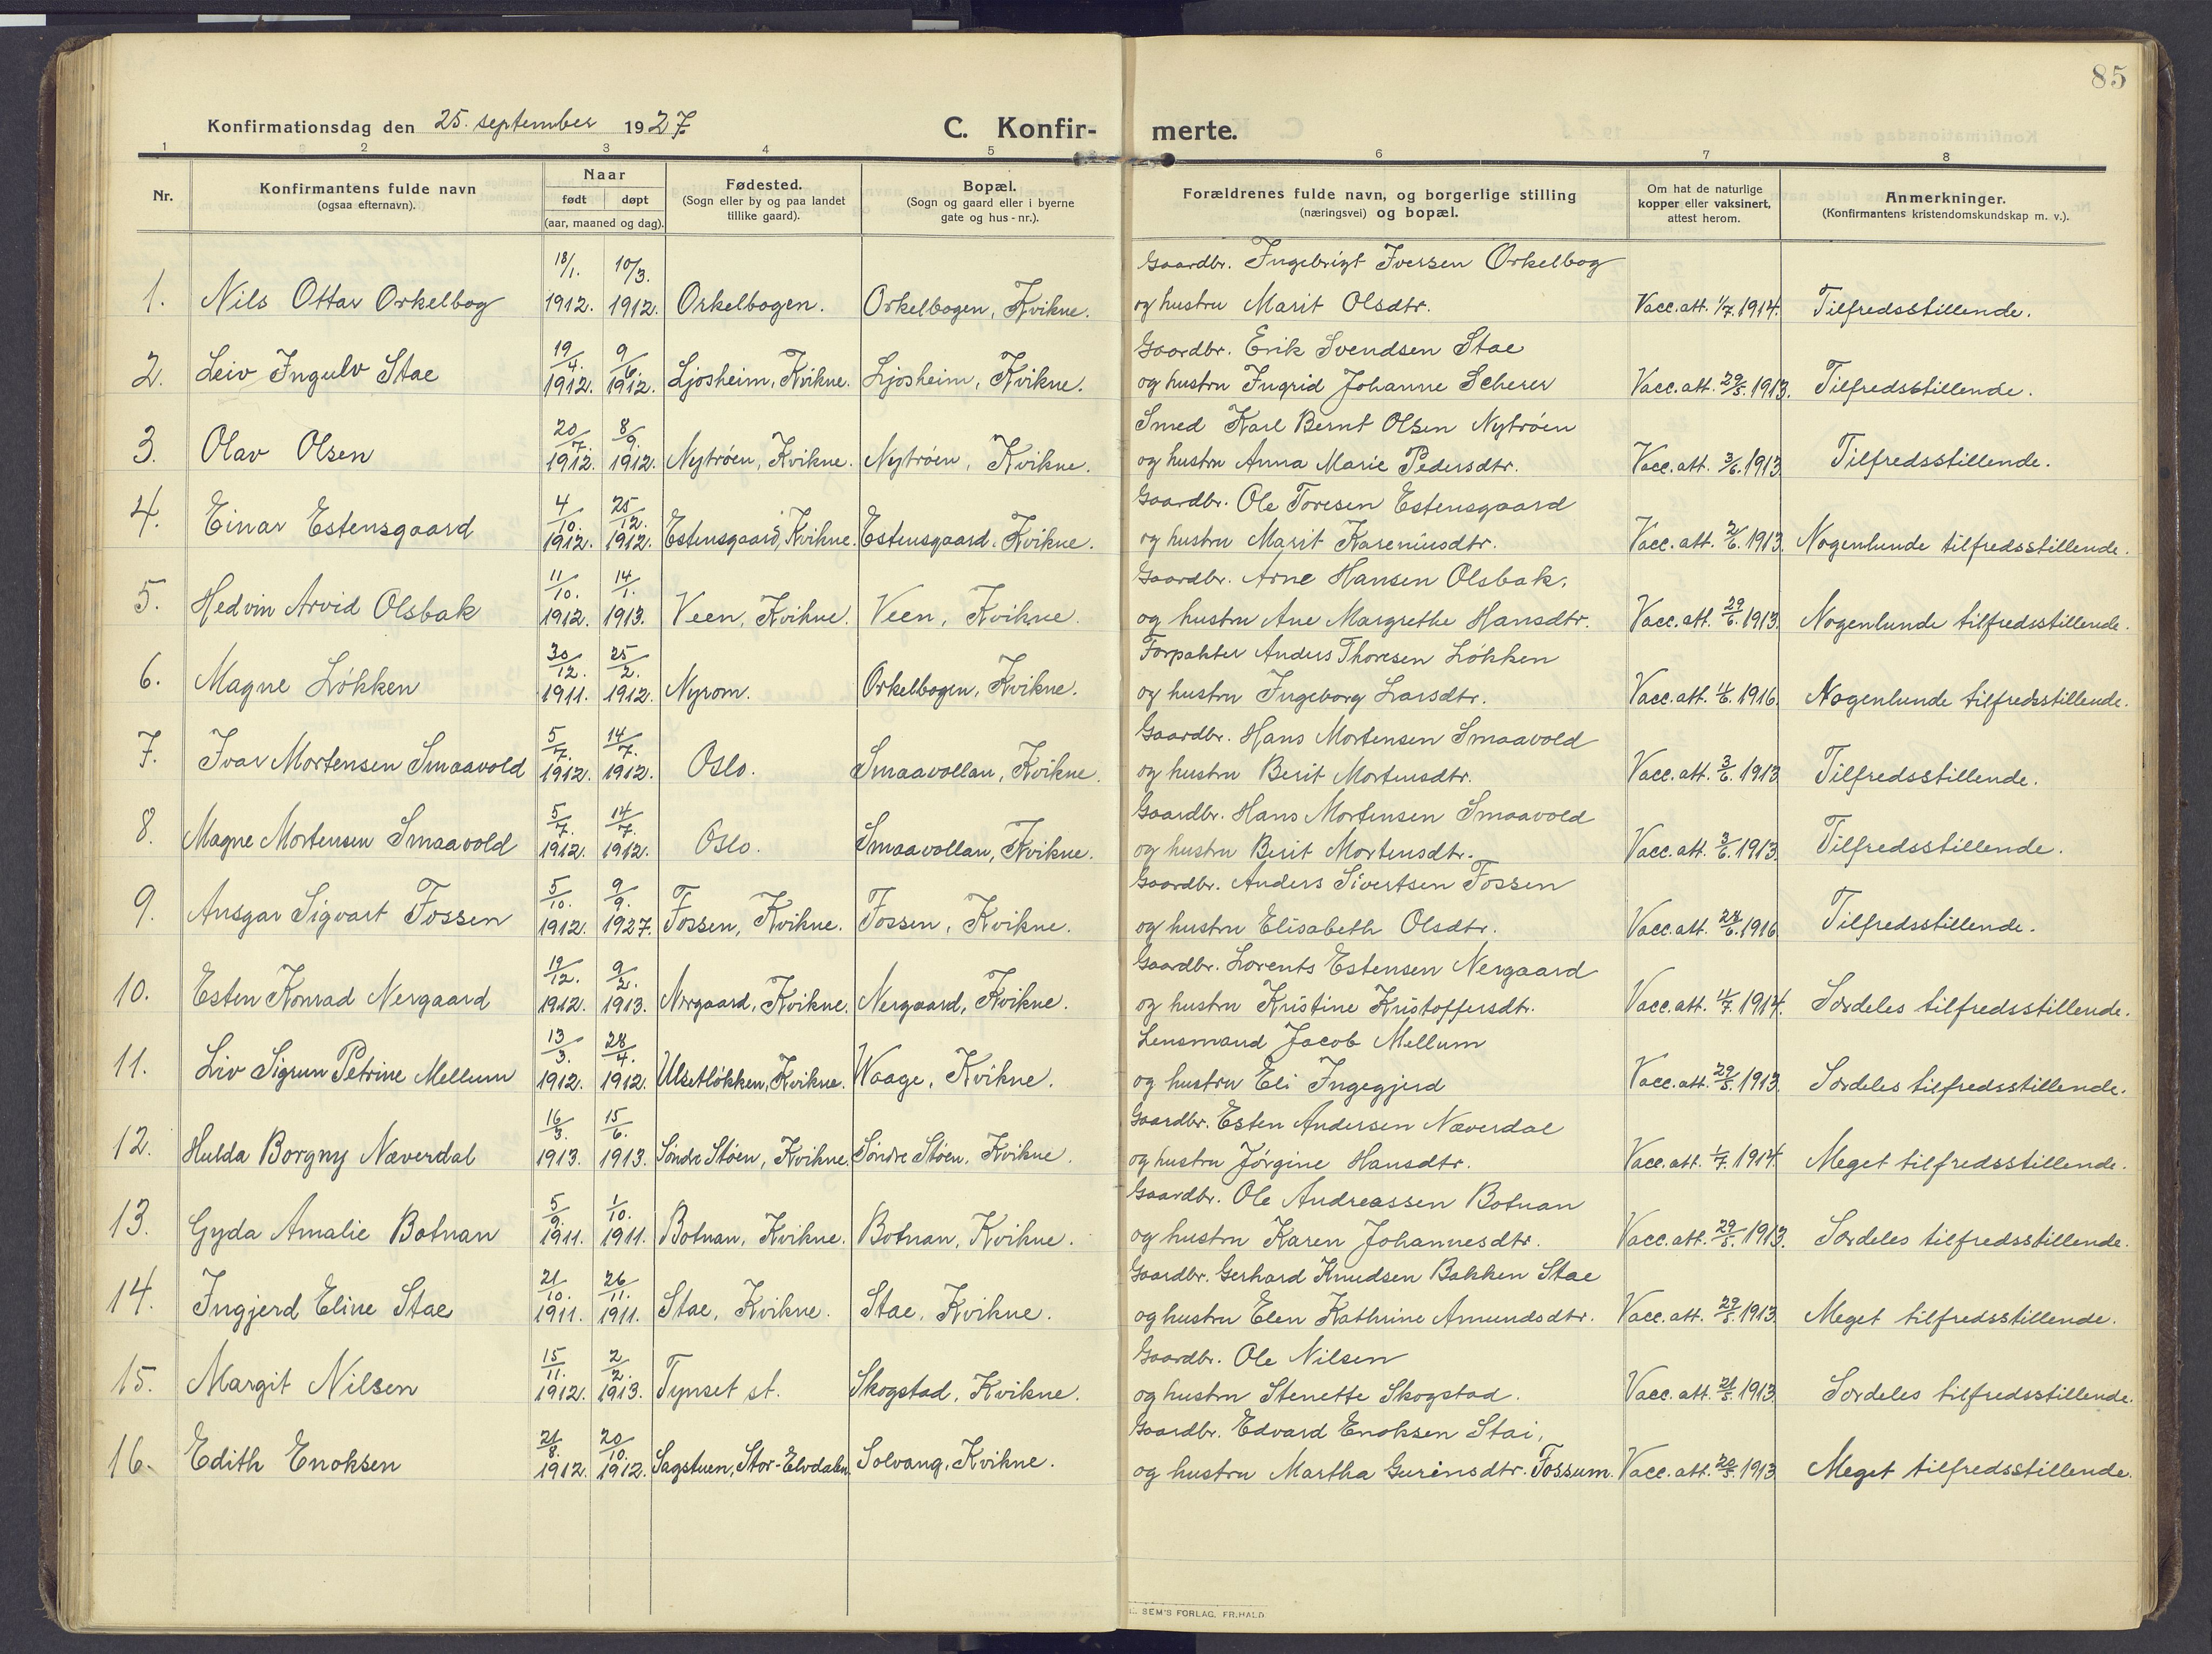 85
Konfirmationsdag den 25. september 1927.
C. Konfir- merte.
1 2 3 4 5 6 7 8
Nr.
Konfirmantens fulde navn
(ogsaa efternavn).
Naar
født døpt
(aar, maaned og dag).
Fødested.
(Sogn eller by og paa landet
tillike gaard).
Bopæl.
(Sogn og gaard eller i byerne
gate og hus-nr.).
Forældrenes fulde navn, og borgerlige stilling
(næringsvei) og bopæl.
Om hat de naturlige
kopper eller vaksinert,
attest herom.
Anmerkninger.
(Konfirmantens kristendomskundskap m. v.).
18/1. 10/3. Gaardbr. Ingebrigt Iversen Orkelbog
1. Nils Ottar Orkelbog 1912. 1912. Orkelbogen. Orkelbogen, Kvikne. og hustru Marit Olsdtr. Vacc. att. 1/7. 1914. Tilfredsstillende.
19/4. 9/6. Gaardbr. Erik Svendsen Stae
2. Leiv Ingulv Stae 1912. 1912. Ljosheim, Kvikne. Ljosheim, Kvikne. og hustru Ingrid Johanne Scherer Vacc. att. 29/5. 1913. Tilfredsstillende.
20/7. 8/9. Smed Karl Bernt Olsen Nytrøen
3. Olav Olsen 1912. 1912. Nytrøen, Kvikne. Nytrøen, Kvikne. og hustru Anna Marie Pedersdtr. Vacc. att. 3/6. 1913 Tilfredsstillende.
4/10. 25/12. Gaardbr. Ole Toresen Estensgaard
4. Einar Estensgaard 1912. 1912. Estensgaard, Kvikne. Estensgaard. Kvikne. og hustru Marit Kareniusdtr. Vacc. att. 1913. Nogenlunde tilfredsstillende.
11/10. 14/1. Gaardbr. Arne Hansen Olsbak,
5. Hedvin Arvid Olsbak 1912. 1913. Veen, Kvikne. Veen, Kvikne. og hustru Ane Margrethe Hansdtr. Vacc. att. 29/6. 1913. Nogenlunde tilfredsstillende.
30/12. 25/2. Forpakter Anders Thoresen Løkken
6. Magne Løkken 1911. 1912. Nyrom. Orkelbogen, Kvikne. og hustru Ingeborg Larsdtr. Vacc. att. 11/6. 1916. Nogenlunde tilfredsstillende.
5/7. 14/7. Gaardbr. Hans Mortensen Smaavold
7. Ivar Mortensen Smaavold 1912. 1912. Oslo. Smaavollan, Kvikne. og hustru Berit Mortensdtr. Vacc. att. 3/6. 1913 Tilfredsstillende.
5/7. 14/7. Gaardbr. Hans Mortensen Smaavold
8. Magne Mortensen Smaavold 1912. 1912. Oslo. Smaavollan, Kvikne. og hustru Berit Mortensdtr. Vacc. att. 3/6. 1913 Tilfredsstillende.
5/10. 9/9. Gaardbr. Anders Sivertsen Fossen
9. Ansgar Sigvart Fossen 1912. 1927. Fossen, Kvikne. Fossen, Kvikne. og hustru Elisabeth Olsdtr. Vacc. att. 28/6. 1916 Tilfredsstillende.
19/12. 9/2. Gaardbr. Lorents Estensen Nergaard
10. Esten Konrad Nergaard 1912. 1913. Nergaard, Kvikne. Nergaard, Kvikne. og hustru Kristine Kristoffersdtr. Vacc. att. 11/7. 1914. Særdeles tilfredsstillende.
13/3. 28/4. Lensmand Jacob Mellum
11. Liv Sigrun Petrine Mellum 1912. 1912. Ulsetløkken, Kvikne. Waage, Kvikne. og hustru Eli Ingegjerd Vacc. att. 29/5. 1913. Særdeles tilfredsstillende.
16/3. 15/6. Gaardbr. Esten Andersen Næverdal
12. Hulda Borgny Næverdal 1913. 1913. Søndre Støen, Kvikne. Søndre Støen, Kvikne. og hustru Jørgine Hansdtr. Vacc. att. 1/7. 1914. Meget tilfredsstillende.
5/9. 1/10. Gaardbr. Ole Andreassen Botnan
13. Gyda Amalie Botnan 1911. 1911. Botnan, Kvikne. Botnan, Kvikne. og hustru Karen Johannesdtr. Vacc. att. 29/5. 1913. Særdeles tilfredsstillende.
21/10. 26/11. Gaardbr. Gerhard Knudsen Bakken Stae
14. Ingjerd Eline Stae 1911. 1911. Stae, Kvikne. Stae, Kvikne. og hustru Elen Kathrine Amundsdtr. Vacc. att. 29/5. 1913. Meget tilfredsstillende.
15/11. 2/2. Gaardbr. Ole Nilsen
15. Margit Nilsen 1912. 1913. Tynset st. Skogstad, Kvikne. og hustru Stenette Skogstad. Vacc. att. 21/5. 1913. Særdeles tilfredsstillende.
21/8. 20/10. Gaardbr. Edvard Enoksen Stai,
16. Edith Enoksen 1912. 1912. Sagstuen, Stor-Elvdalen. Solvang, Kvikne. og hustru Martha Gurinsdtr. Fossum. Vacc. att. 20/5. 1913 Meget tilfredsstillende.
SEM'S FORLAG, FR.HALD